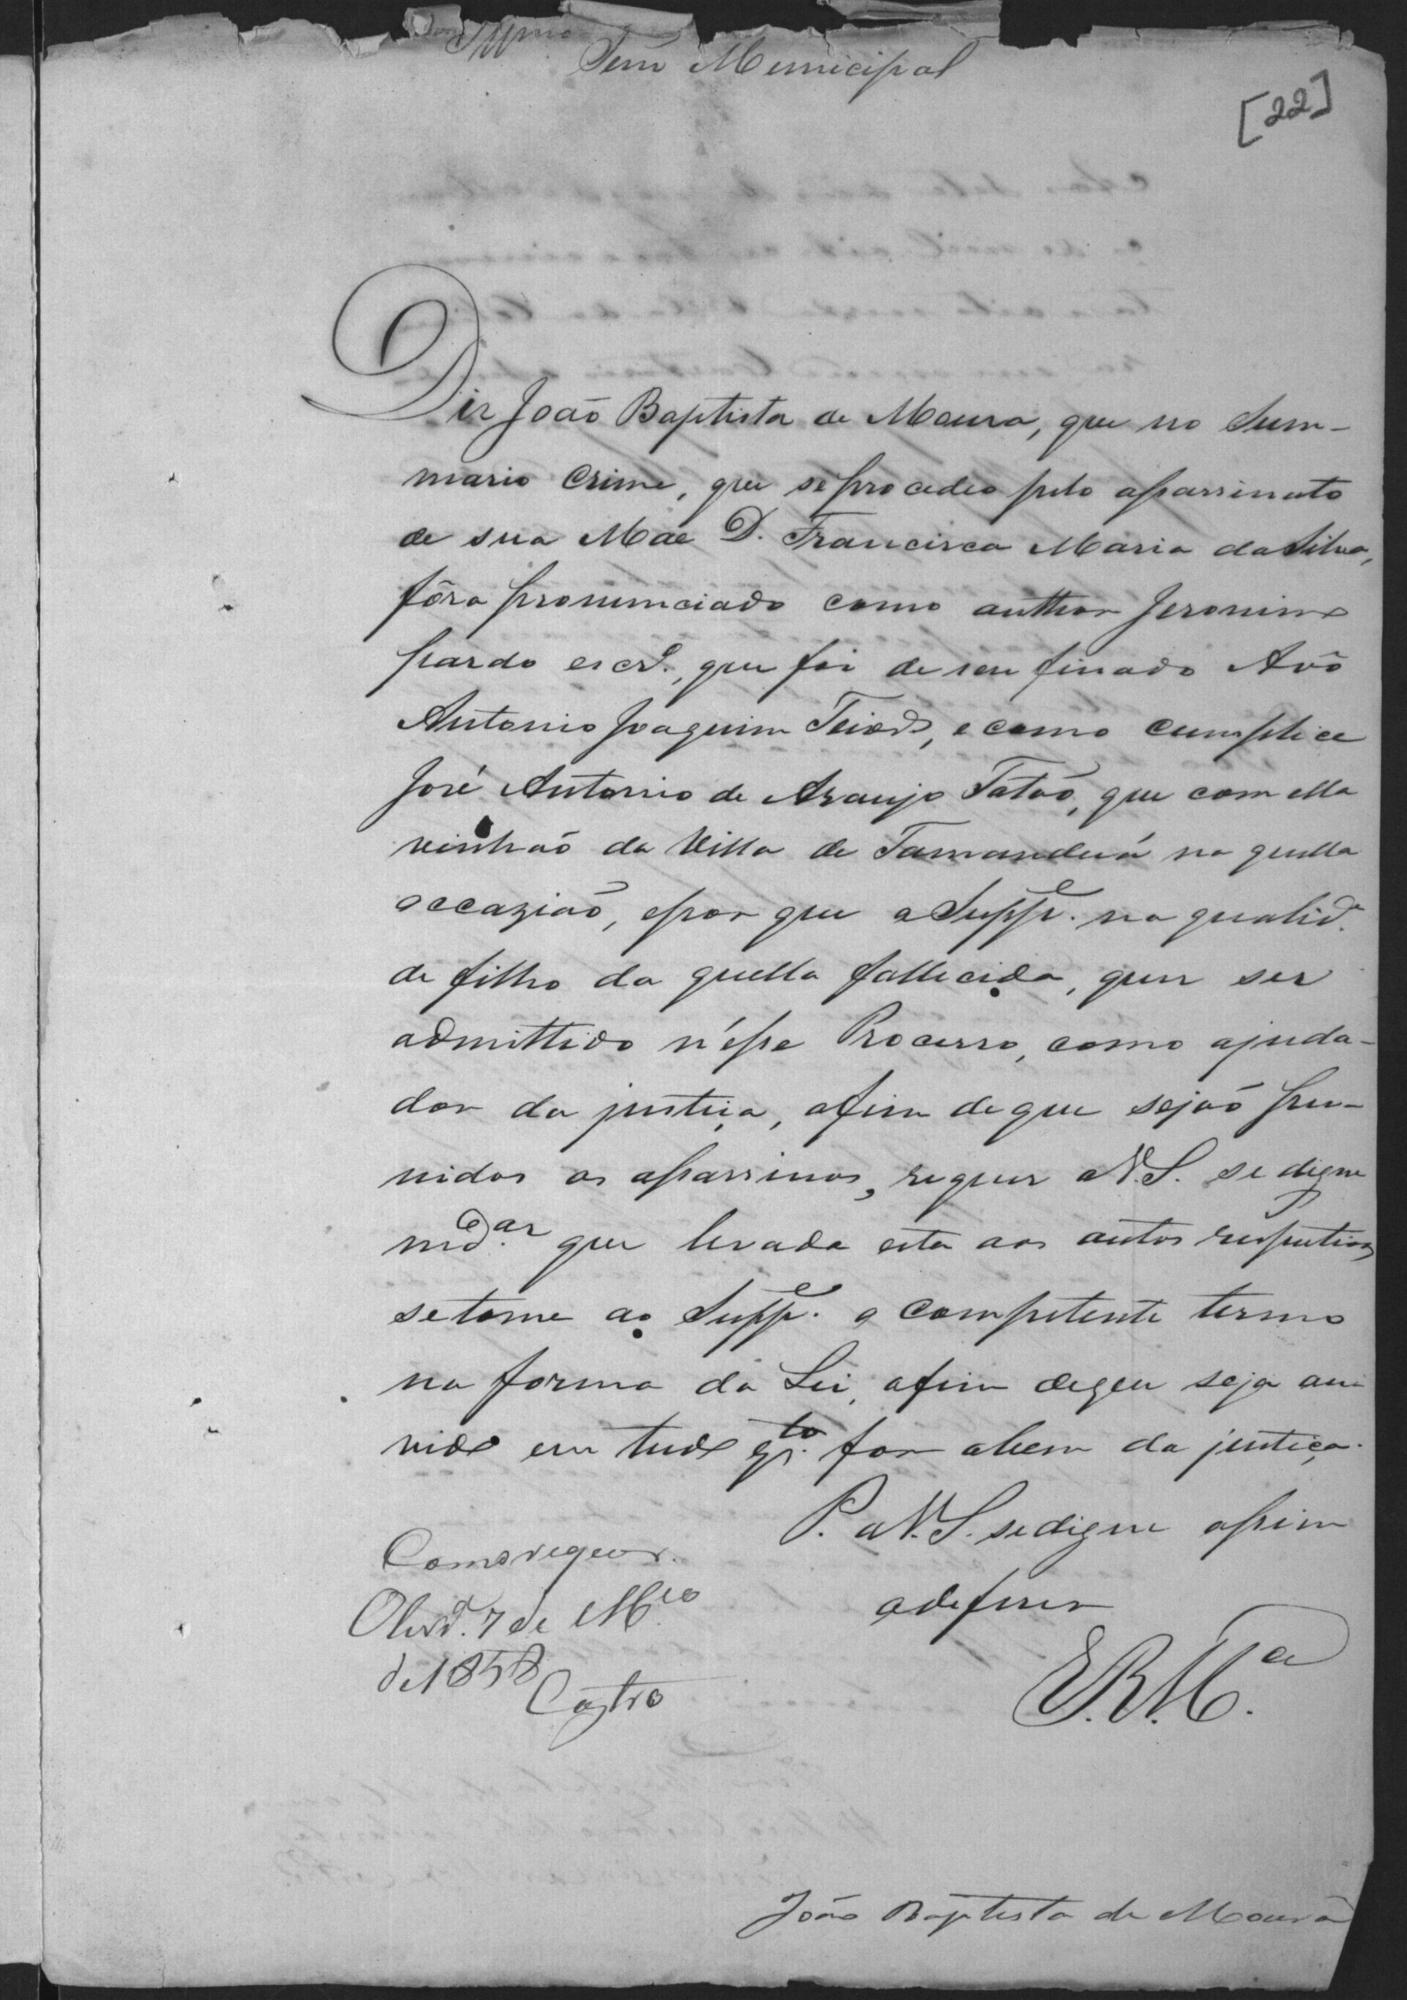 Illmo
Senr Municipal
[22]
Diz João Baptista de Moura, que no Sum-
mario Crime, que se procedeo pelo assassinato
de sua Mãe D. Francisca Maria da Silva,
fôra pronunciado como author Jeronimo
pardo escr.º, que foi de seu finado Avô
Antonio Joaquim, e como cumplice
José Antonio de Araujo Tatão, que com ella
vinhão da Villa de Tamanduá na quella
occazião, e por que o Suppe. na qualid.e
de filho da quella fallecida, quer ser
admittido n'esse Processo, como ajuda-
dor da justiça, afim de que sejão pu-
nidos os assassinos, requer a V.S. se digne
md.ar que levada esta aos autos respectivos
se tome ao Suppe. o competente termo
na forma da Lei, afim de que seja ou
vido em tudo q.to for abem da justiça.
P. a V.S. se digne assim
o deferir
E.R.M.ce
Como requer.
Olivr.ª 7 de M.ço
de 1858
Castro
João Baptista de Moura